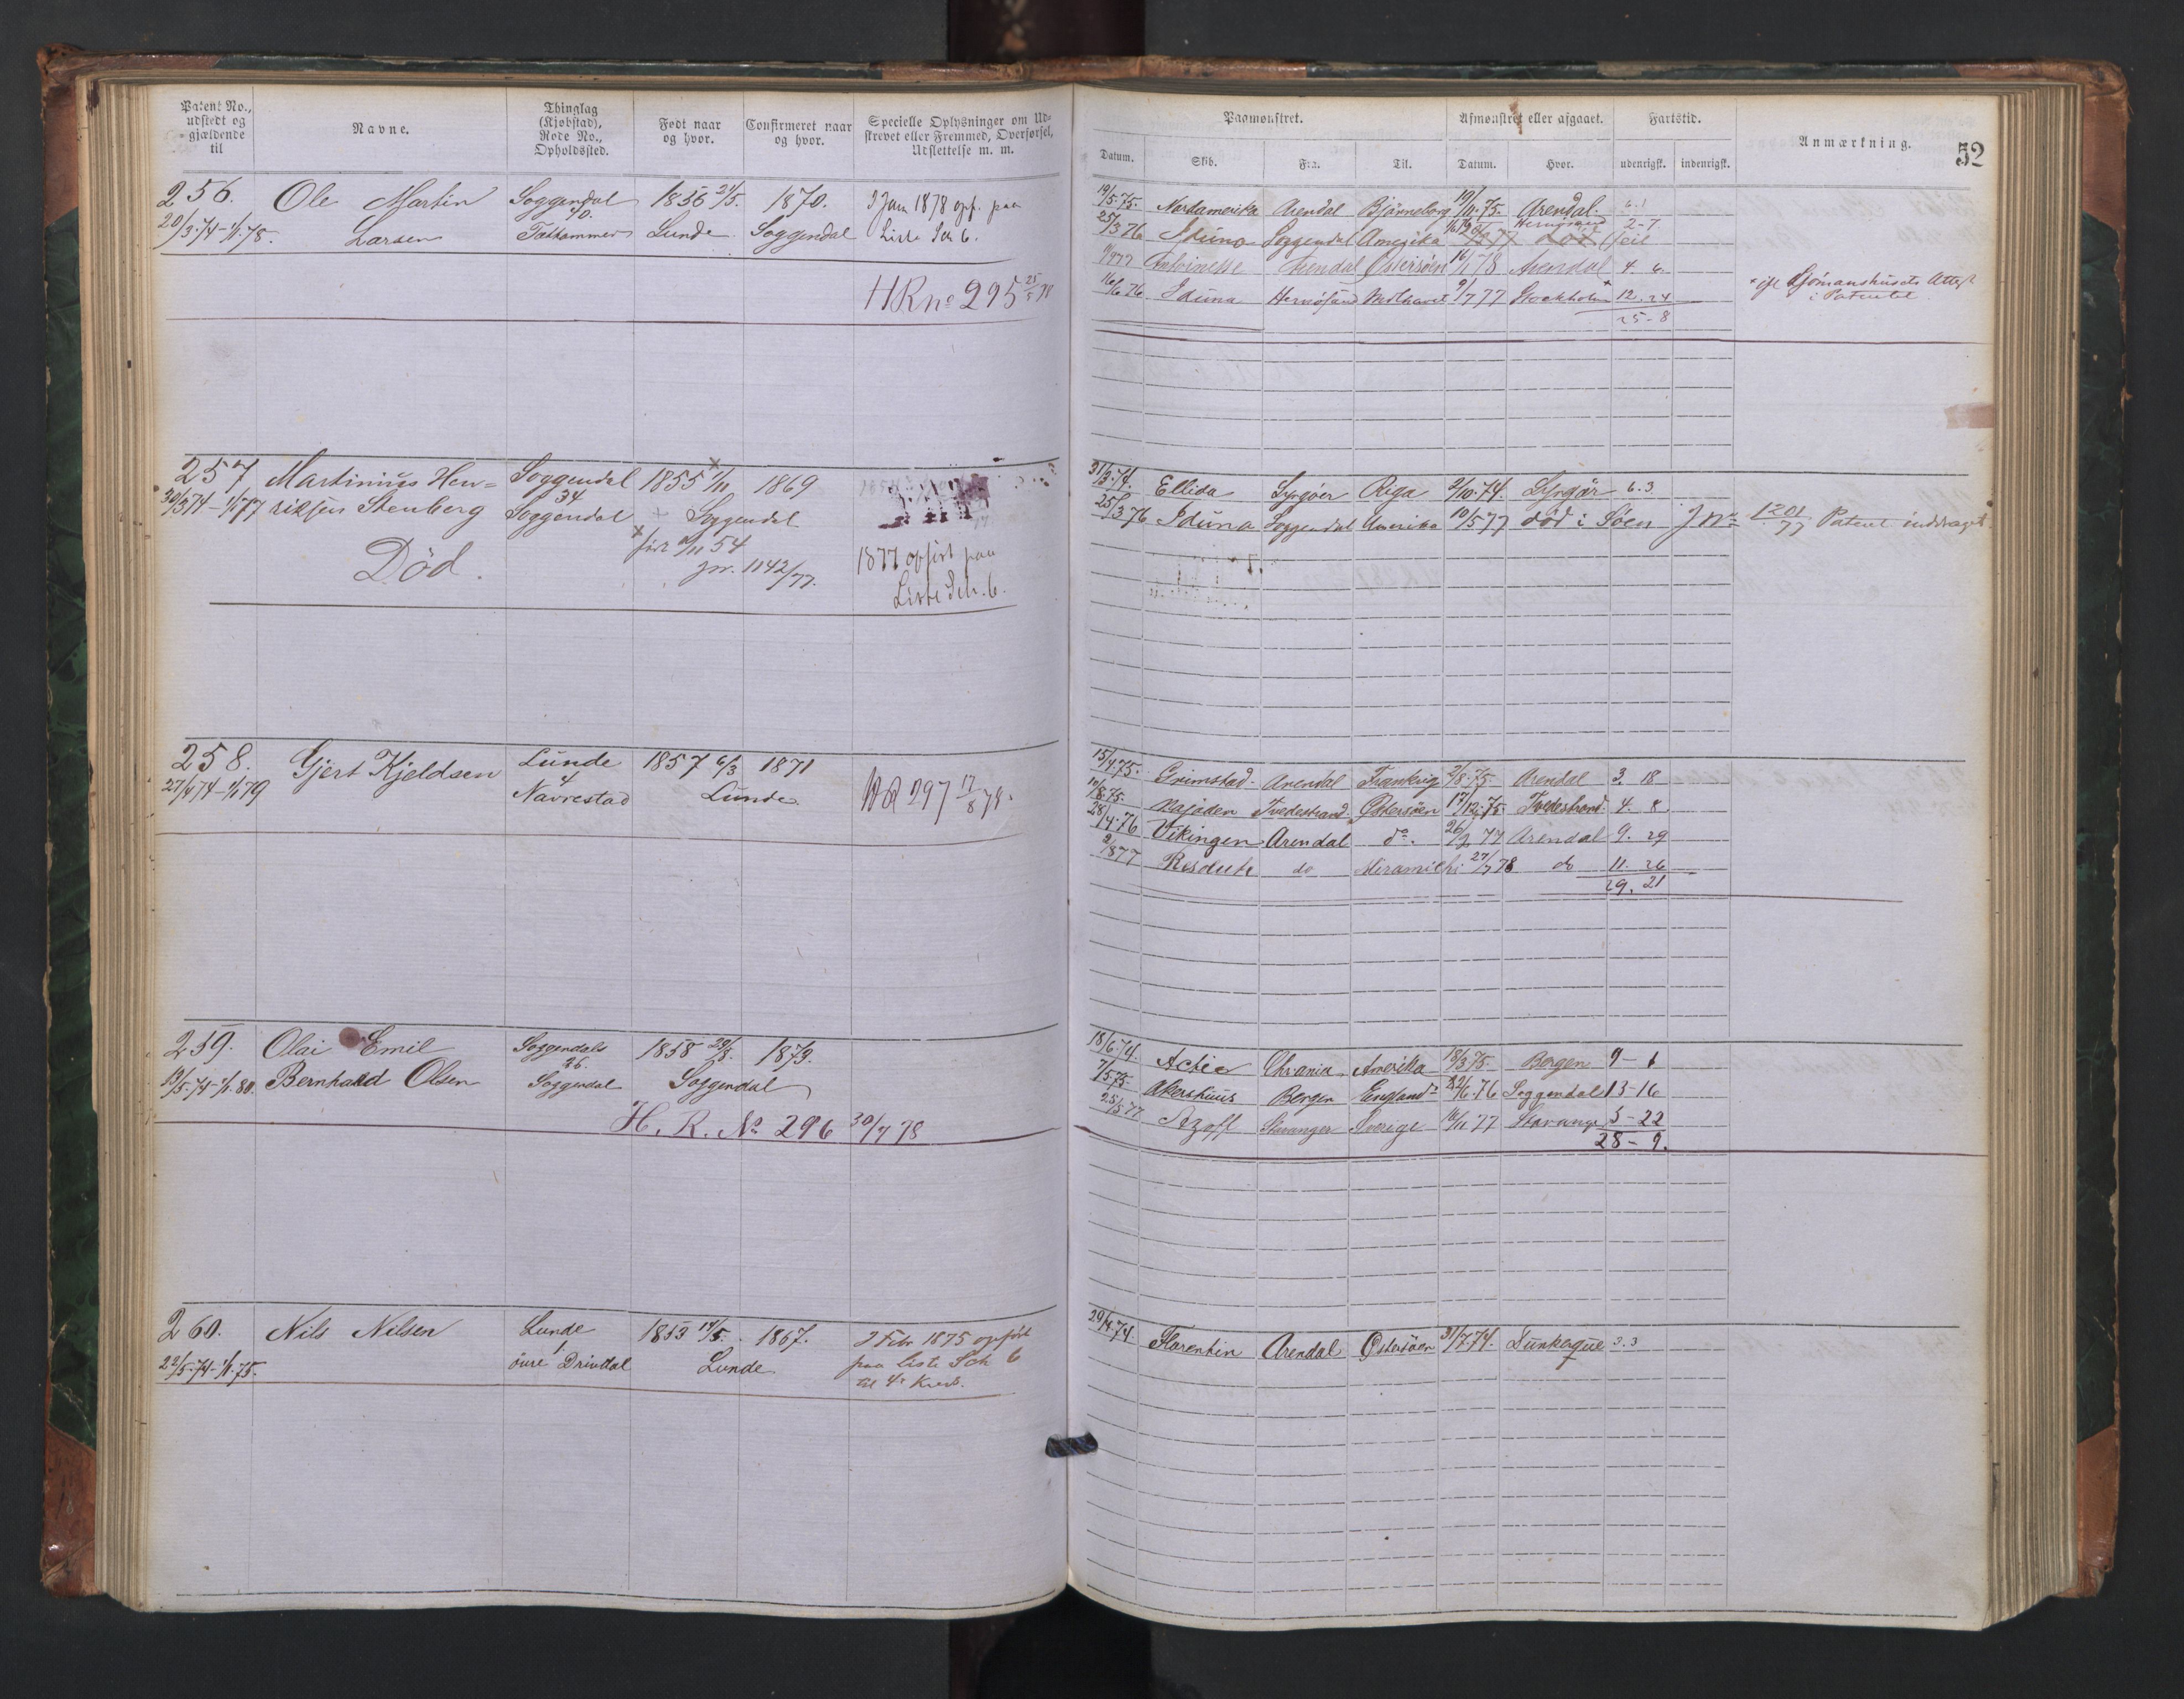 Patent No., udstedt og gjældende til
Navne.
Thinglag (Kjøbstad), Rode No., Opholdssted.
Født naar og hvor.
Confirmeret naar og hvor.
Specielle Oplysninger om Udskrevet eller Fremmed, Overførsel, Udslettelse m. m.
256. Ole Martin Soggendal 1856 24/5. 1870. I Jan 1878 opf. paa
20/3.74-1/1.78. Larsen 40. Lunde Soggendal Liste Sch 6.
H R No 295 25/5 78
257. Martinius Hen= Soggendal 1855 1/11 1869
30/3 74 - 1/1 77 riksen Stenberg 34 Soggendal + Soggendal
Död. 54 1877 opført paa
jnr. 1142/77. Liste Sch. 6.
258. Gjert Kjeldsen Lunde 1857 6/3 1871
27/4 74 - 1/1 79 4 Navrestad Lunde 297 17/8 78.
259. Olai Emil Soggendals 1858 29/8. 1873.
19/5.74-1/1.80. Bernhard Olsen 26. Soggendal Soggendal
H. R. No 296 30/7 78
260. Nils Nilsen Lunde 1853 14/5. 1867. I Febr 1875 opført
22/5.74-1/1.75. 1 övre Drivdal Lunde paa liste Sch 6
til 4de Kred.
Paamønstret.
Afmønstret eller afgaaet.
Fartstid.
Anmærkning.
52
Datum. Skib. Fra. Til. Datum. Hvor. udenrigsk. indenrigsk.
19/5.75. Nordamerika Arendal Bjørneborg 19/11.75. Arendal. 6.1
25/3 76 Iduna Soggendal Amerika Hernøsand 2-7
feil
Antoinette Arendal Østersöen 16/1 78 Arendal 4. 6.
16/6 76 Iduna Hernøsand Midhavet 9/7 77 Stockholm + 12. 24 + ifl Sjömanshusets Attest
i Patentet
25-8
31/3.74. Ellida Lyngöer Riga 2/10.74. Lyngör 6.3
25/3 76 Iduna Soggendal Amerika 10/5 77 död i Söen J No 1201/77 Patent inddraget
15/4.75. Grimstad. Arendal Frankrig 2/8.75. Arendal 3. 18
10/8.75. Najaden Tvedestrand. Østersöen 17/12.75. Tvedestrand. 4. 8.
28/4.76 Vikingen Arendal do. 26/2 77 Arendal 9. 29
2/8 77 Resolute do Miramichi 27/7 78 do 11. 26
29. 21
18/6.74. Activ Chrania. Amerika 18/3.75. Bergen 9-1
7/5.75. Akershuus Bergen England 22/6.76 Soggendal 13-16
25/5 77 Azoff Stavanger Sverige 16/11 77 Stavanger 5-22
28-9.
29/4.74. Florentin Arendal Østersöen 31/7.74. Dunkerque 3.3